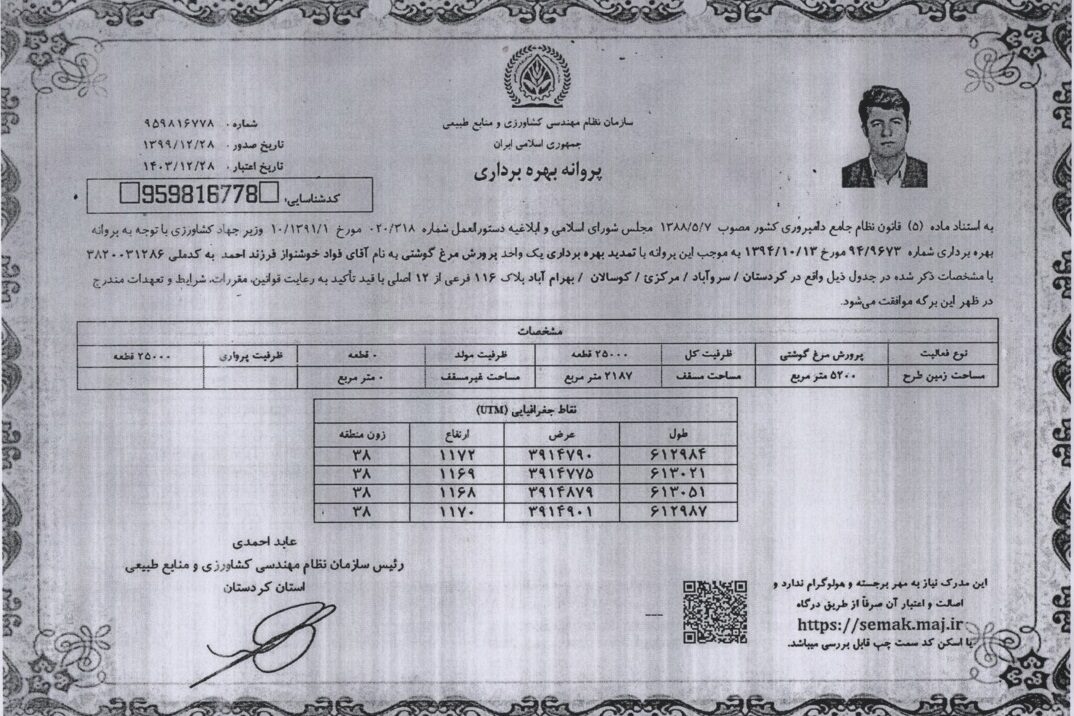 سازمان نظام مهندسی کشاورزی و منابع طبیعی
جمهوری اسلامی ایران
پروانه بهره برداری
شماره : ۹۵۹۸۱۶۷۷۸
تاریخ صدور : ۱۳۹۹/۱۲/۲۸
تاریخ اعتبار : ۱۴۰۳/۱۲/۲۸
کدشناسایی: 959816778
به استناد ماده (۵) قانون نظام جامع دامپروری کشور مصوب ۱۳۸۸/۵/۷ مجلس شورای اسلامی و ابلاغیه دستورالعمل شماره ۰۲۰/۳۱۸ مورخ ۱۰/۱۳۹۱/۱ وزیر جهاد کشاورزی با توجه به پروانه
بهره برداری شماره ۹۴/۹۶۷۳ مورخ ۱۳۹۴/۱۰/۱۳ به موجب این پروانه با تمدید بهره برداری یک واحد پرورش مرغ گوشتی به نام آقای فواد خوشنواز فرزند احمد به کدملی ۳۸۲۰۰۳۱۲۸۶
با مشخصات ذکر شده در جدول ذیل واقع در کردستان / سروآباد / مرکزی / کوسالان / بهرام آباد پلاک ۱۱۶ فرعی از ۱۲ اصلی با قید تأکید به رعایت قوانین، مقررات، شرایط و تعهدات مندرج
در ظهر این برگه موافقت می‌شود.
مشخصات
نوع فعالیت پرورش مرغ گوشتی ظرفیت کل ۲۵۰۰۰ قطعه ظرفیت مولد ۰ قطعه ظرفیت پرواری ۲۵۰۰۰ قطعه
مساحت زمین طرح ۵۲۰۰ متر مربع مساحت مسقف ۲۱۸۷ متر مربع مساحت غیرمسقف ۰ متر مربع
نقاط جغرافیایی (UTM)
طول عرض ارتفاع زون منطقه
۶۱۲۹۸۴ ۳۹۱۴۷۹۰ ۱۱۷۲ ۳۸
۶۱۳۰۲۱ ۳۹۱۴۷۷۵ ۱۱۶۹ ۳۸
۶۱۳۰۵۱ ۳۹۱۴۸۷۹ ۱۱۶۸ ۳۸
۶۱۲۹۸۷ ۳۹۱۴۹۰۱ ۱۱۷۰ ۳۸
عابد احمدی
رئیس سازمان نظام مهندسی کشاورزی و منابع طبیعی
استان کردستان
این مدرک نیاز به مهر برجسته و هولوگرام ندارد و
اصالت و اعتبار آن صرفاً از طریق درگاه
https://semak.maj.ir
یا اسکن کد سمت چپ قابل بررسی میباشد.